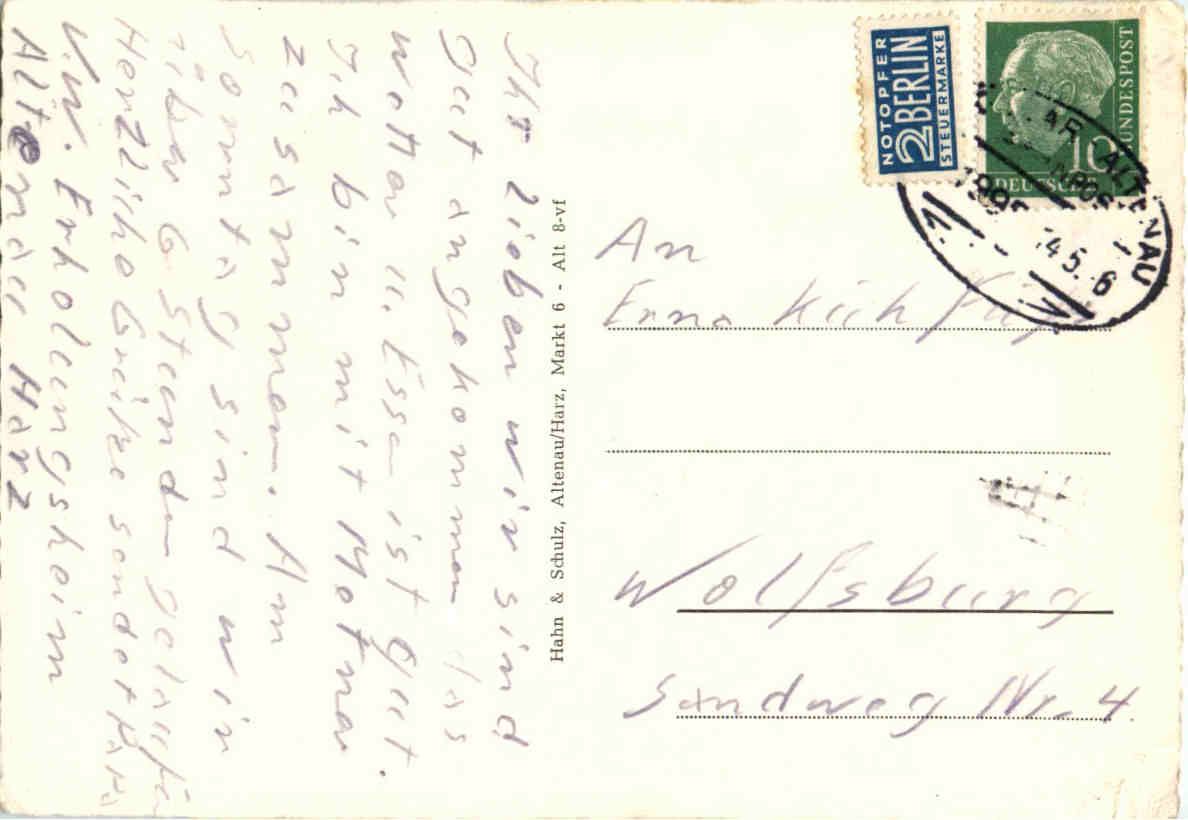 Ihr lieben wir sind
gut angekommen das
Wetter u. Essen ist gut.
Ich bin mit
zusammen. Am
Sonntag sind wir
über 6 Stunden
Herzliche Grüße sendet
V.W. Erholungsheim
Altenau Harz
Hahn & Schulz, Altenau/Harz, Markt 6 - Alt 8-vf
NOTOPFER
2 BERLIN
STEUERMARKE
10
DEUTSCHE
BUNDESPOST
ALTENAU
An
Erna
Wolfsburg
Sandweg Nr. 4